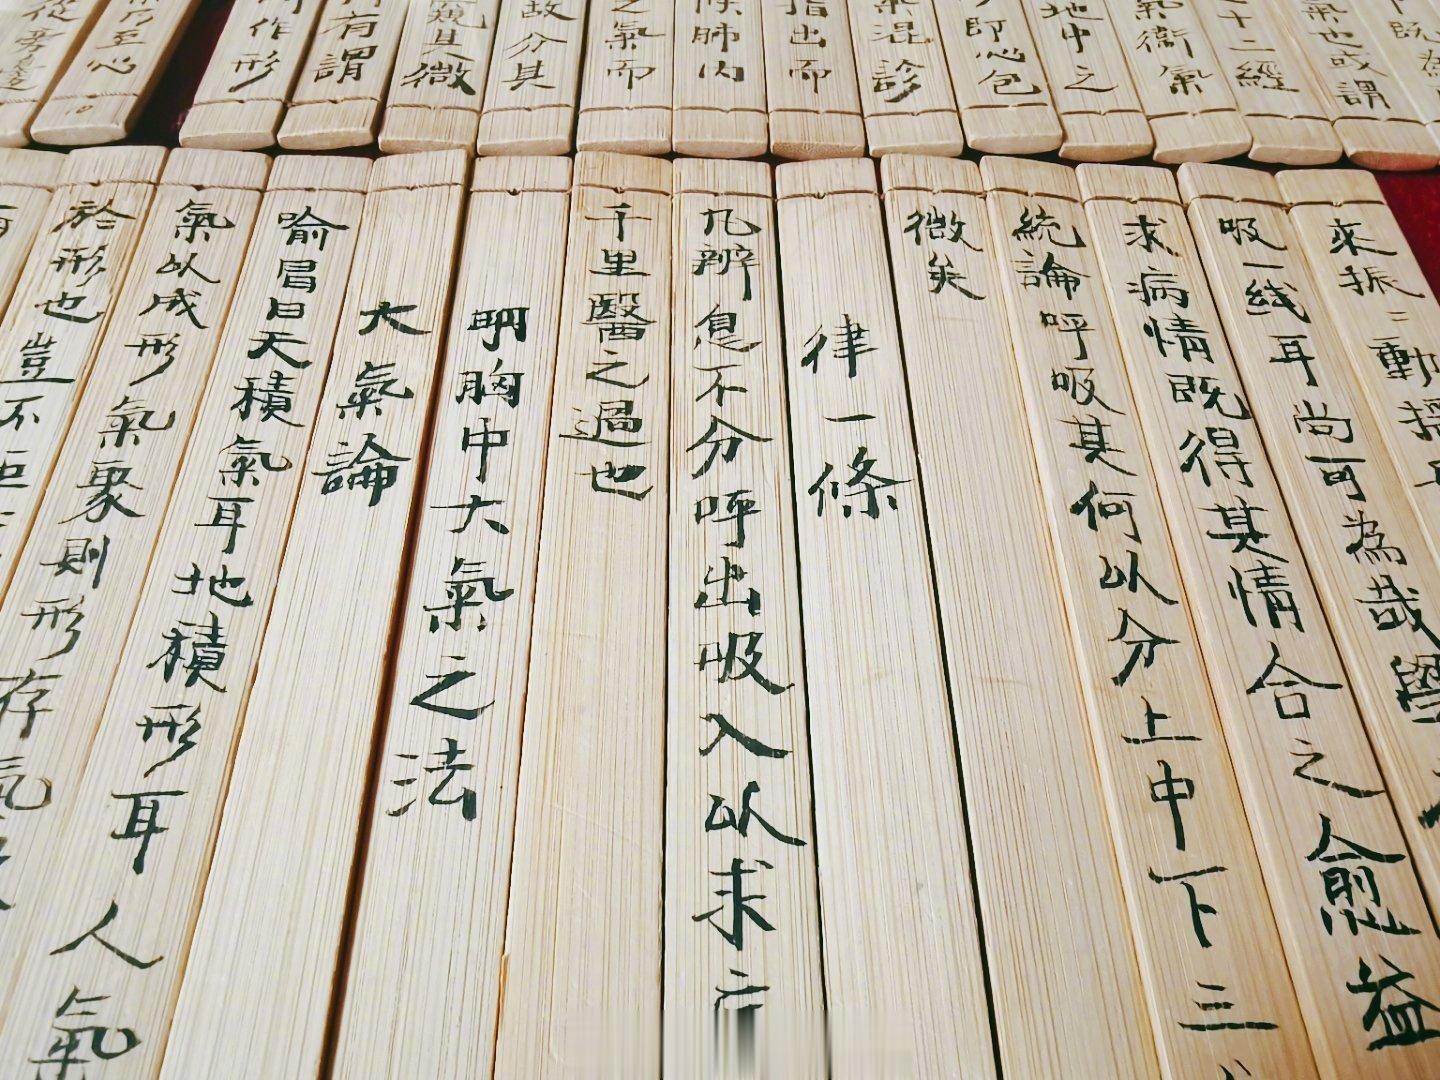 既為
氣也或謂
十二經
氣衛氣
地中之
即心包
氣混診
指出而
候肺內
之氣而
故分其
微
有謂
作形
至心
來振〻動搖
吸一線耳尚可為哉學
求病情既得其情合之愈益
統論呼吸其何以分上中下三
微矣
律一條
凡辨息不分呼出吸入以求
千里醫之過也
明胸中大氣之法
大氣論
喻昌曰天積氣耳地積形耳人氣
氣以成形氣聚則形存氣
於形也豈不